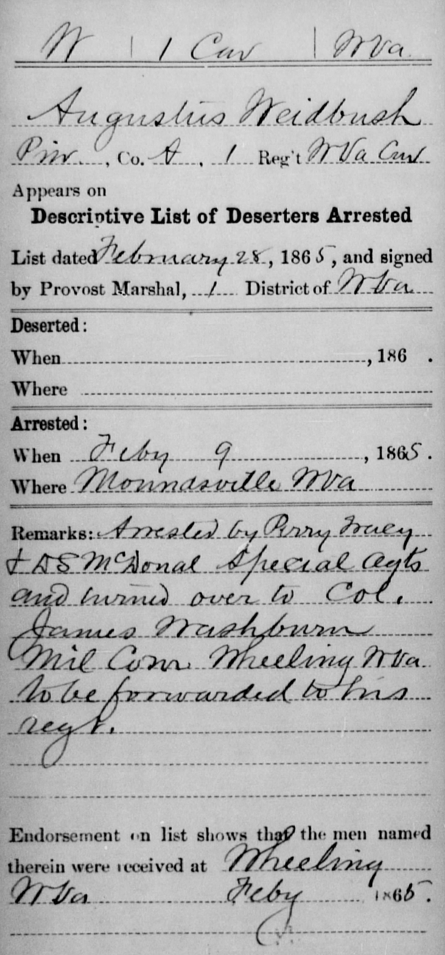 W | 1 Cav | W Va.
Augustus Weidbush
Priv., Co. A, 1 Reg't W Va Cav
Appears on
Descriptive List of Deserters Arrested
List dated February 28, 1865, and signed
by Provost Marshal, 1 District of W Va
Deserted:
When , 186 .
Where
Arrested:
When Feby 9 , 1865.
Where Moundsville W Va
Remarks: Arrested by Perry Tracy
& D S McDonal Special Agts
and turned over to Col.
James Washburn
Mil Com Wheeling W Va
to be forwarded to his
regt.
Endorsement on list shows that the men named
therein were received at Wheeling
W Va Feby , 1865.